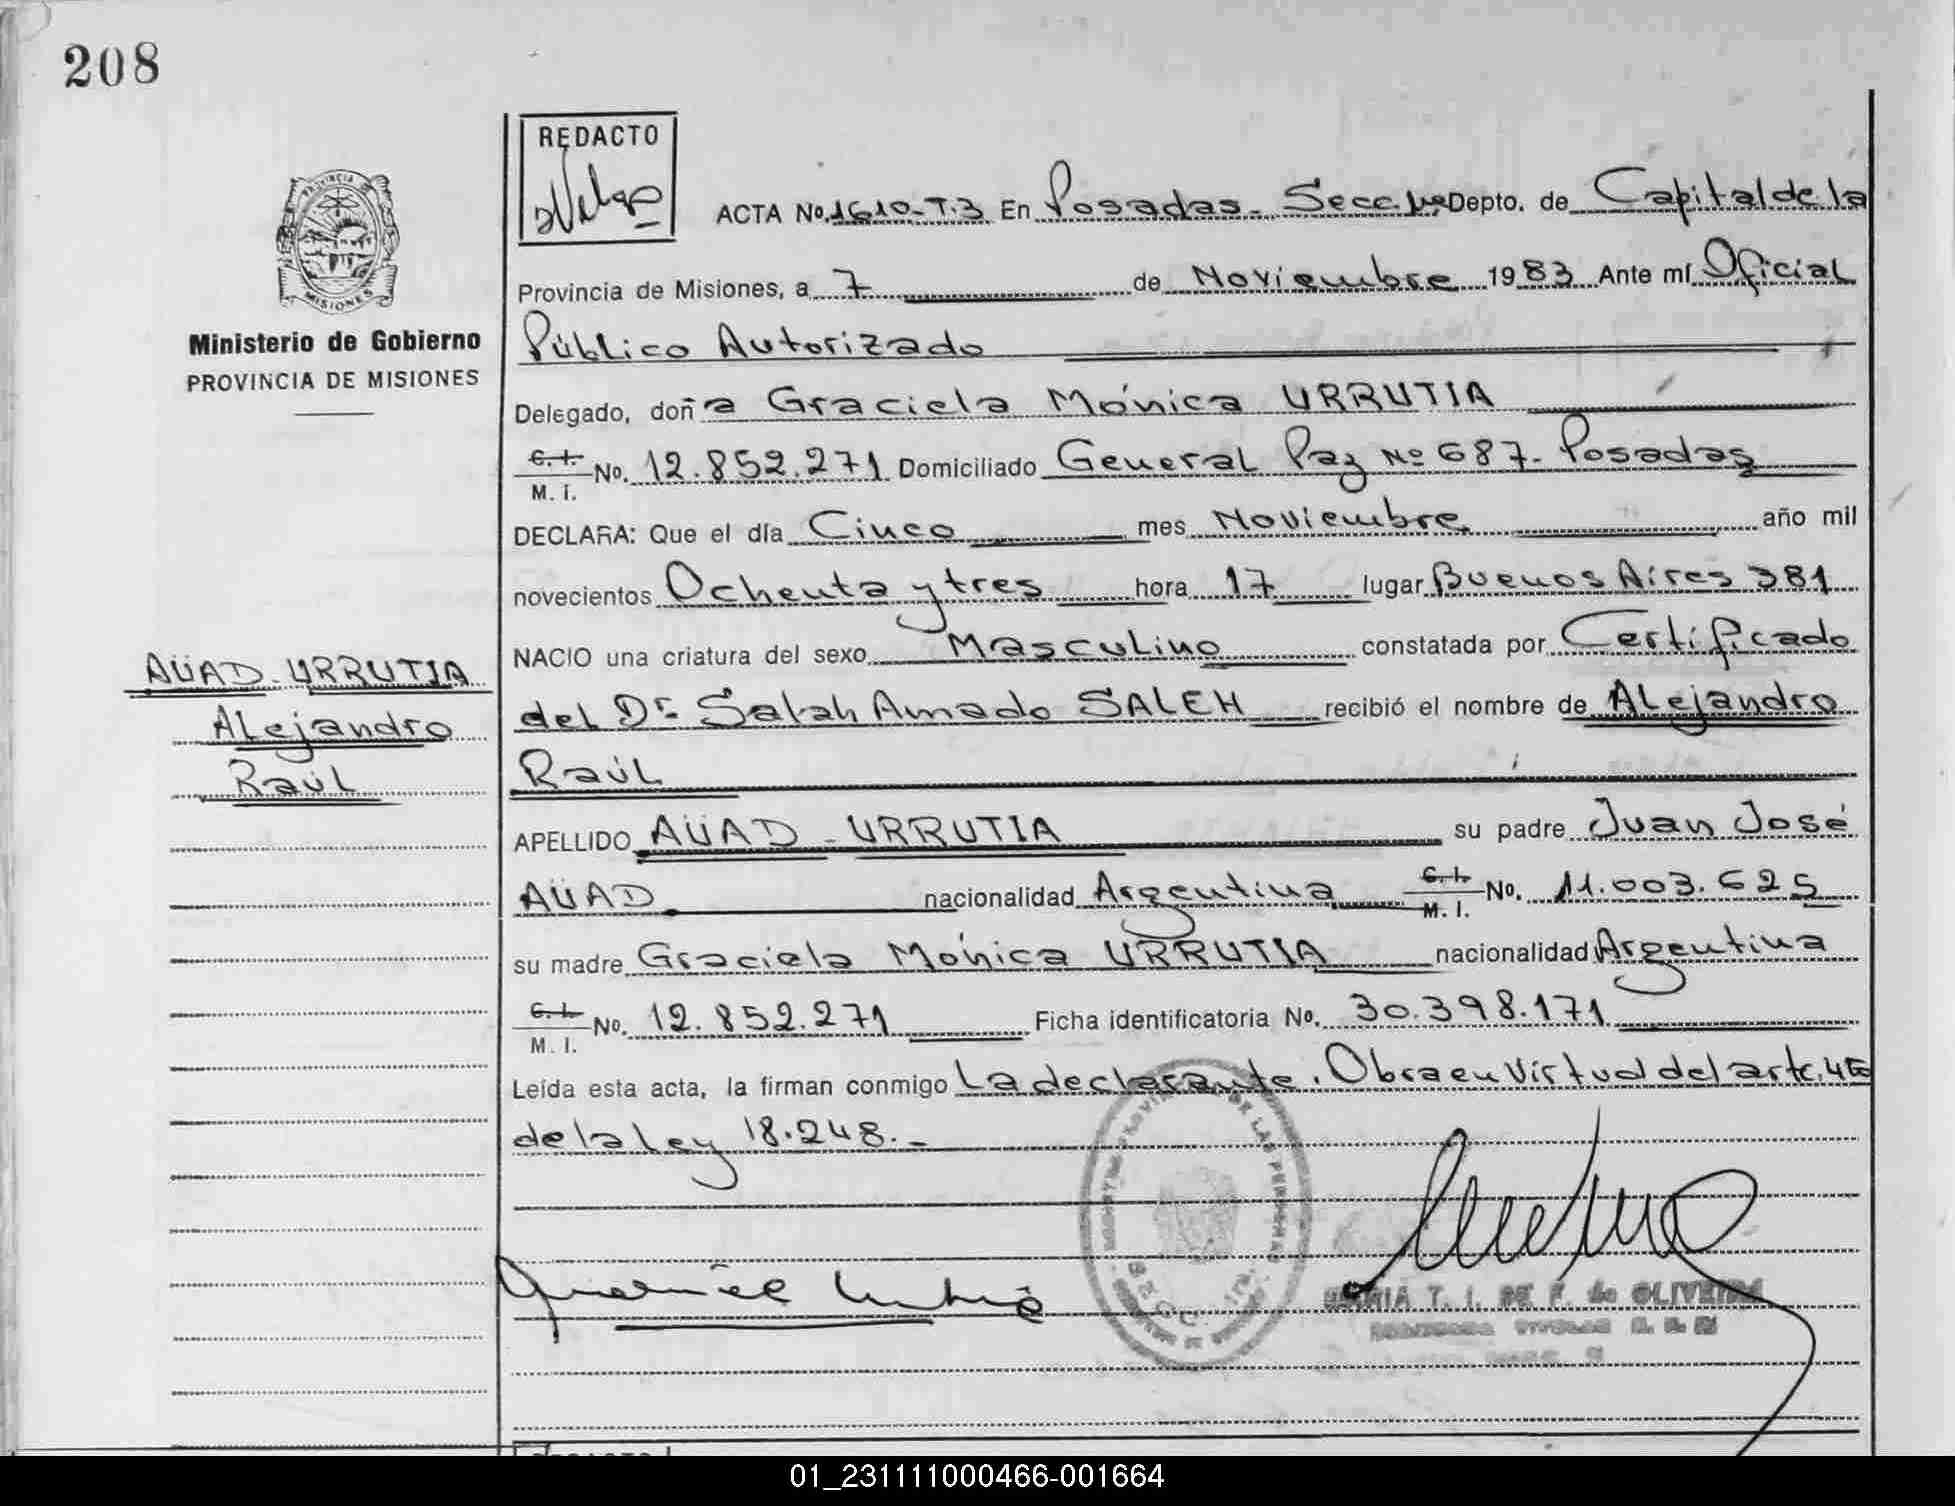 208
REDACTO
ACTA No. 1610-T.3 En Posadas - Secc. 1ra Depto. de Capital de la
PROVINCIA DE
MISIONES
Ministerio de Gobierno
PROVINCIA DE MISIONES
Provincia de Misiones, a 7 de Noviembre 1983 Ante mí Oficial
Público Autorizado
Delegado, doña Graciela Mónica URRUTIA
C.I. M. I. No. 12.852.271 Domiciliado General Paz Nº 687 - Posadas
DECLARA: Que el día Cinco mes Noviembre año mil
novecientos Ochenta y tres hora 17 lugar Buenos Aires 381
NACIO una criatura del sexo Masculino constatada por Certificado
del Dr. Salah Amado SALEH recibió el nombre de Alejandro
Raúl
AÜAD - URRUTIA
Alejandro
Raúl
APELLIDO AÜAD - URRUTIA su padre Juan José
AÜAD nacionalidad Argentina C.I. M. I. No. 11.003.625
su madre Graciela Mónica URRUTIA nacionalidad Argentina
C.I. M. I. No. 12.852.271 Ficha identificatoria No. 30.398.171
Leída esta acta, la firman conmigo La declarante. Obra en Virtud del artc. 4to
de la Ley 18.248.-
DE LAS PERSONAS
SECC. 1ra.
MARIA T. I. DE F. de OLIVEIRA
01_231111000466-001664